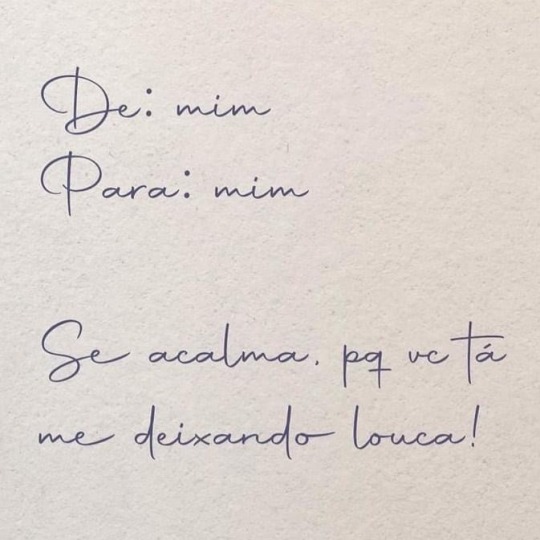 De: mim
Para: mim
Se acalma. pq vc tá
me deixando louca!